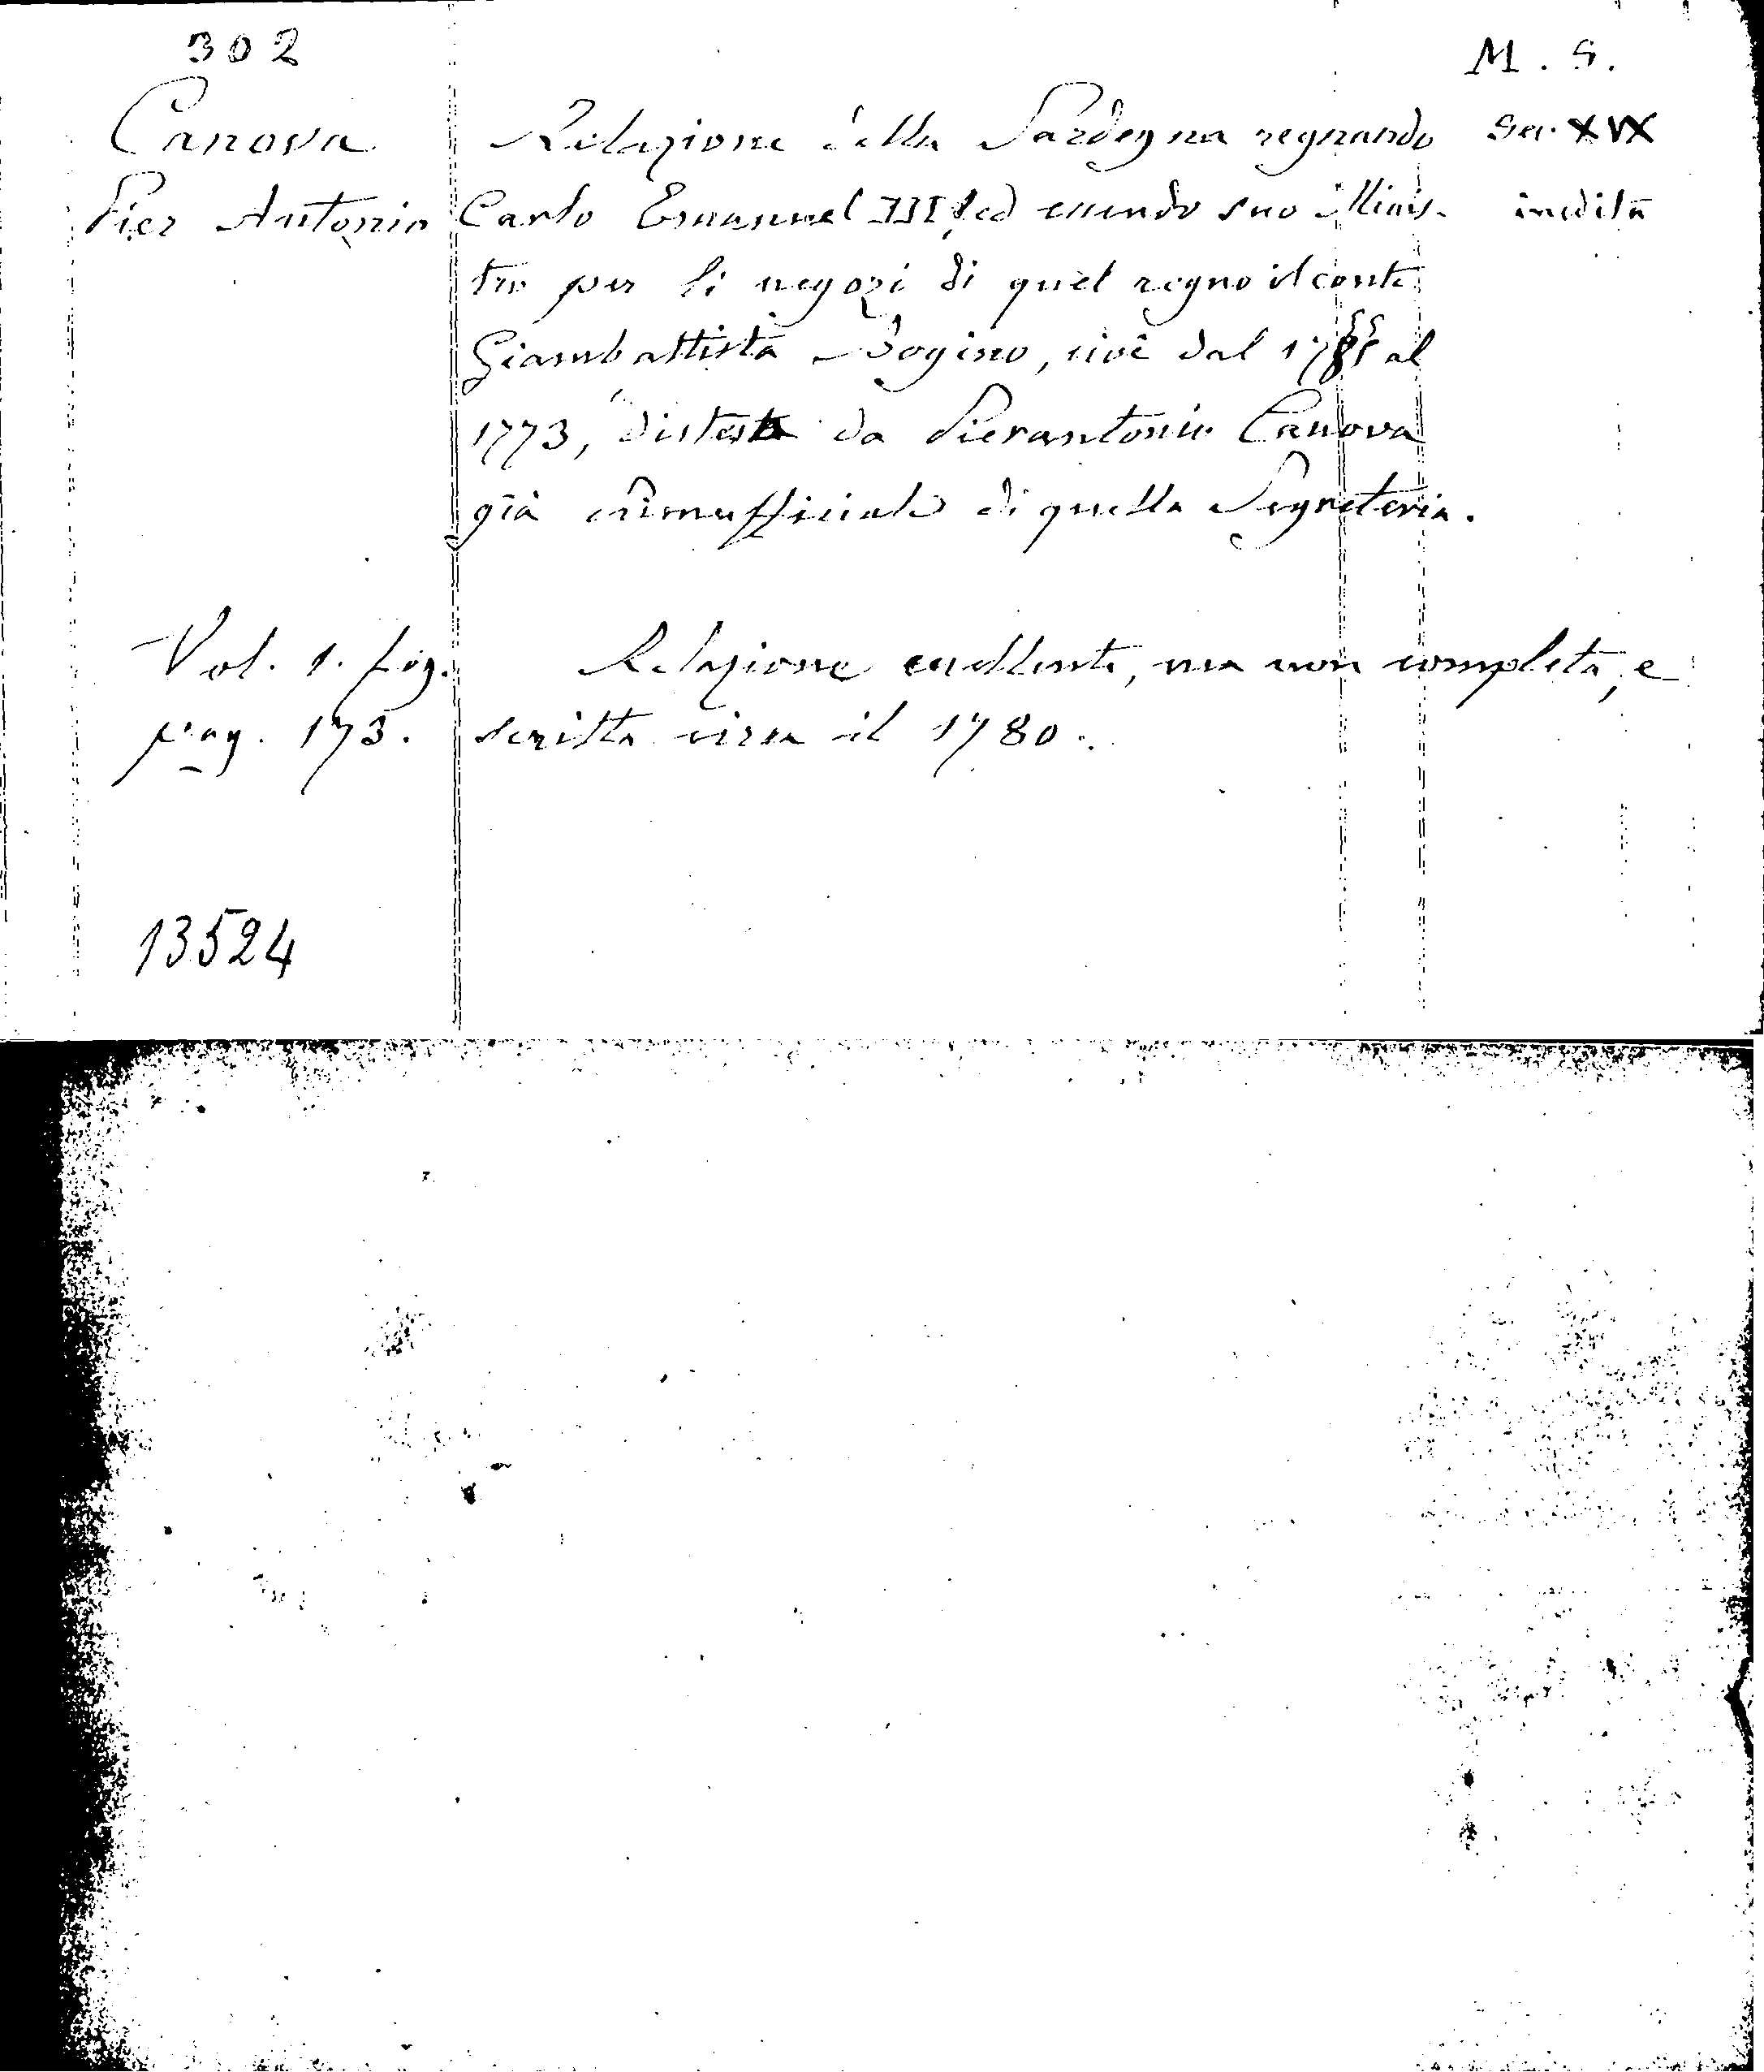 302
M. S.
Canova
Pier Antonio
Relazione della Sardegna regnando
Carlo Emanuel III, ed essendo suo Minis-
tro per li negozi di quel regno il conte
Giambattista Bogino, cioè dal 1755 al
1773, distesa da Pierantonio Canova
già primufficiale di quella Segreteria.
Sec. XIX
inedita
Vol. 1. fog.
pag. 173.
Relazione eccellente, ma non completa, e
scritta circa il 1780.
13524